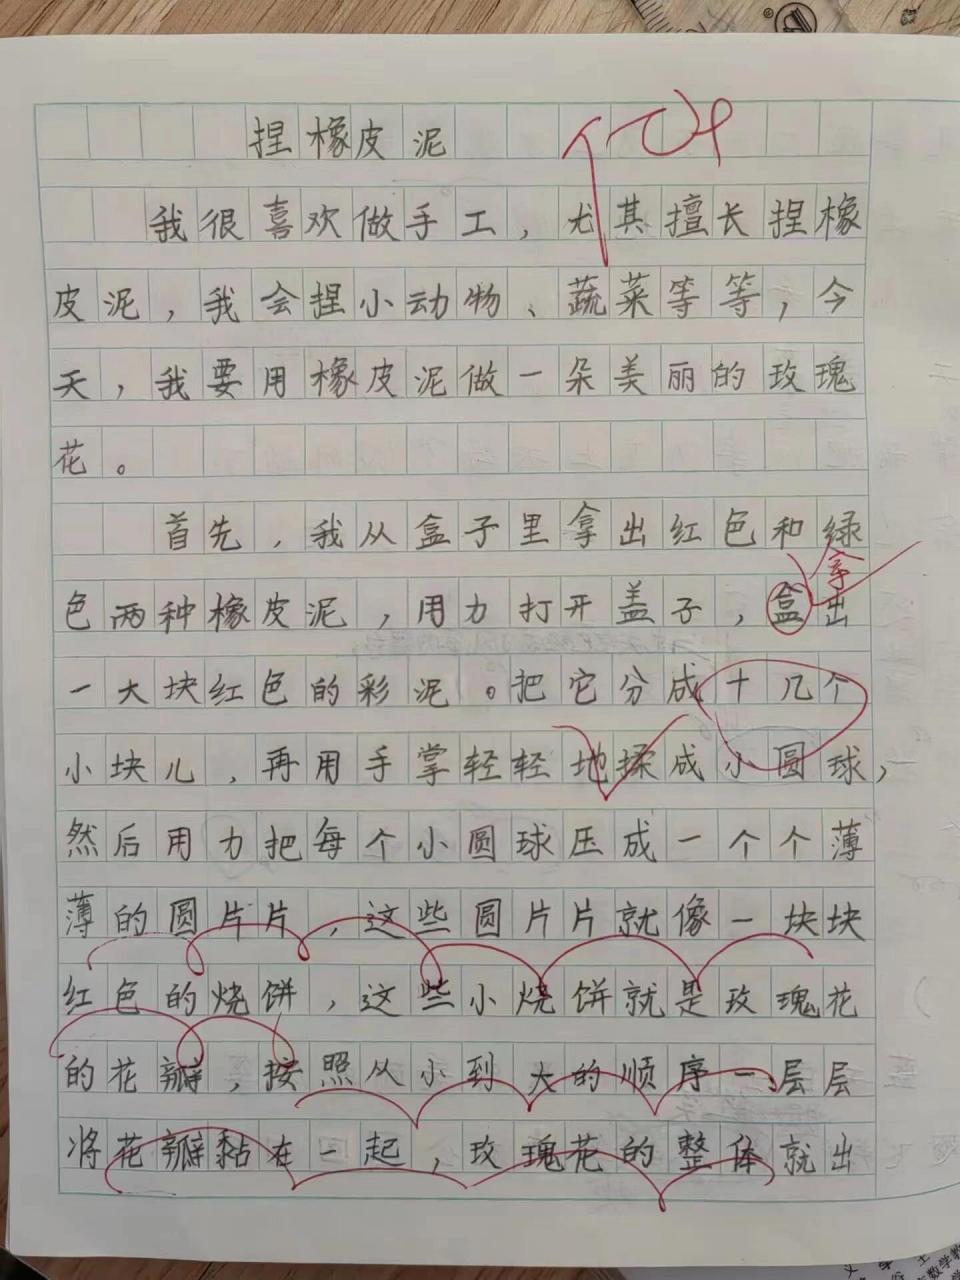 捏橡皮泥
我很喜欢做手工，尤其擅长捏橡
皮泥，我会捏小动物、蔬菜等等，今
天，我要用橡皮泥做一朵美丽的玫瑰
花。
首先，我从盒子里拿出红色和绿
拿
色两种橡皮泥，用力打开盖子，盒出
一大块红色的彩泥。把它分成十几个
小块儿，再用手掌轻轻地揉成小圆球，
然后用力把每个小圆球压成一个个薄
薄的圆片片，这些圆片片就像一块块
红色的烧饼，这些小烧饼就是玫瑰花
的花瓣，按照从小到大的顺序一层层
将花瓣黏在一起，玫瑰花的整体就出